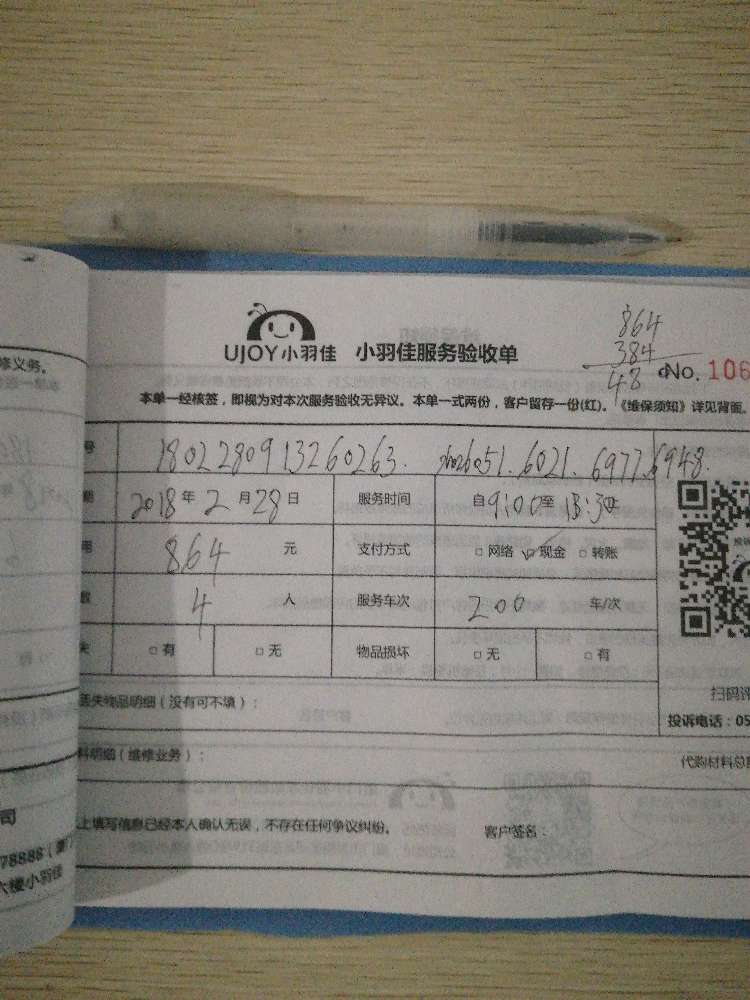 UJOY小羽佳 小羽佳服务验收单
864
384
48
No. 106
修义务。
本单一经核签，即视为对本次服务验收无异议。本单一式两份，客户留存一份(红)。《维保须知》详见背面。
号 1802280913260263. 6051. 6021. 6977. 6948.
期 2018年2月28日 服务时间 自9:00至
用 864 元 支付方式 □网络 ☑现金 □转账
数 4 人 服务车次 200 车/次
失 □有 □无 物品损坏 □无 □有
丢失物品明细（没有可不填）：
扫码评
投诉电话：05
料明细（维修业务）：
代购材料总
上填写信息已经本人确认无误，不存在任何争议纠纷。 客户签名：
司
78888（厦
六楼小羽佳